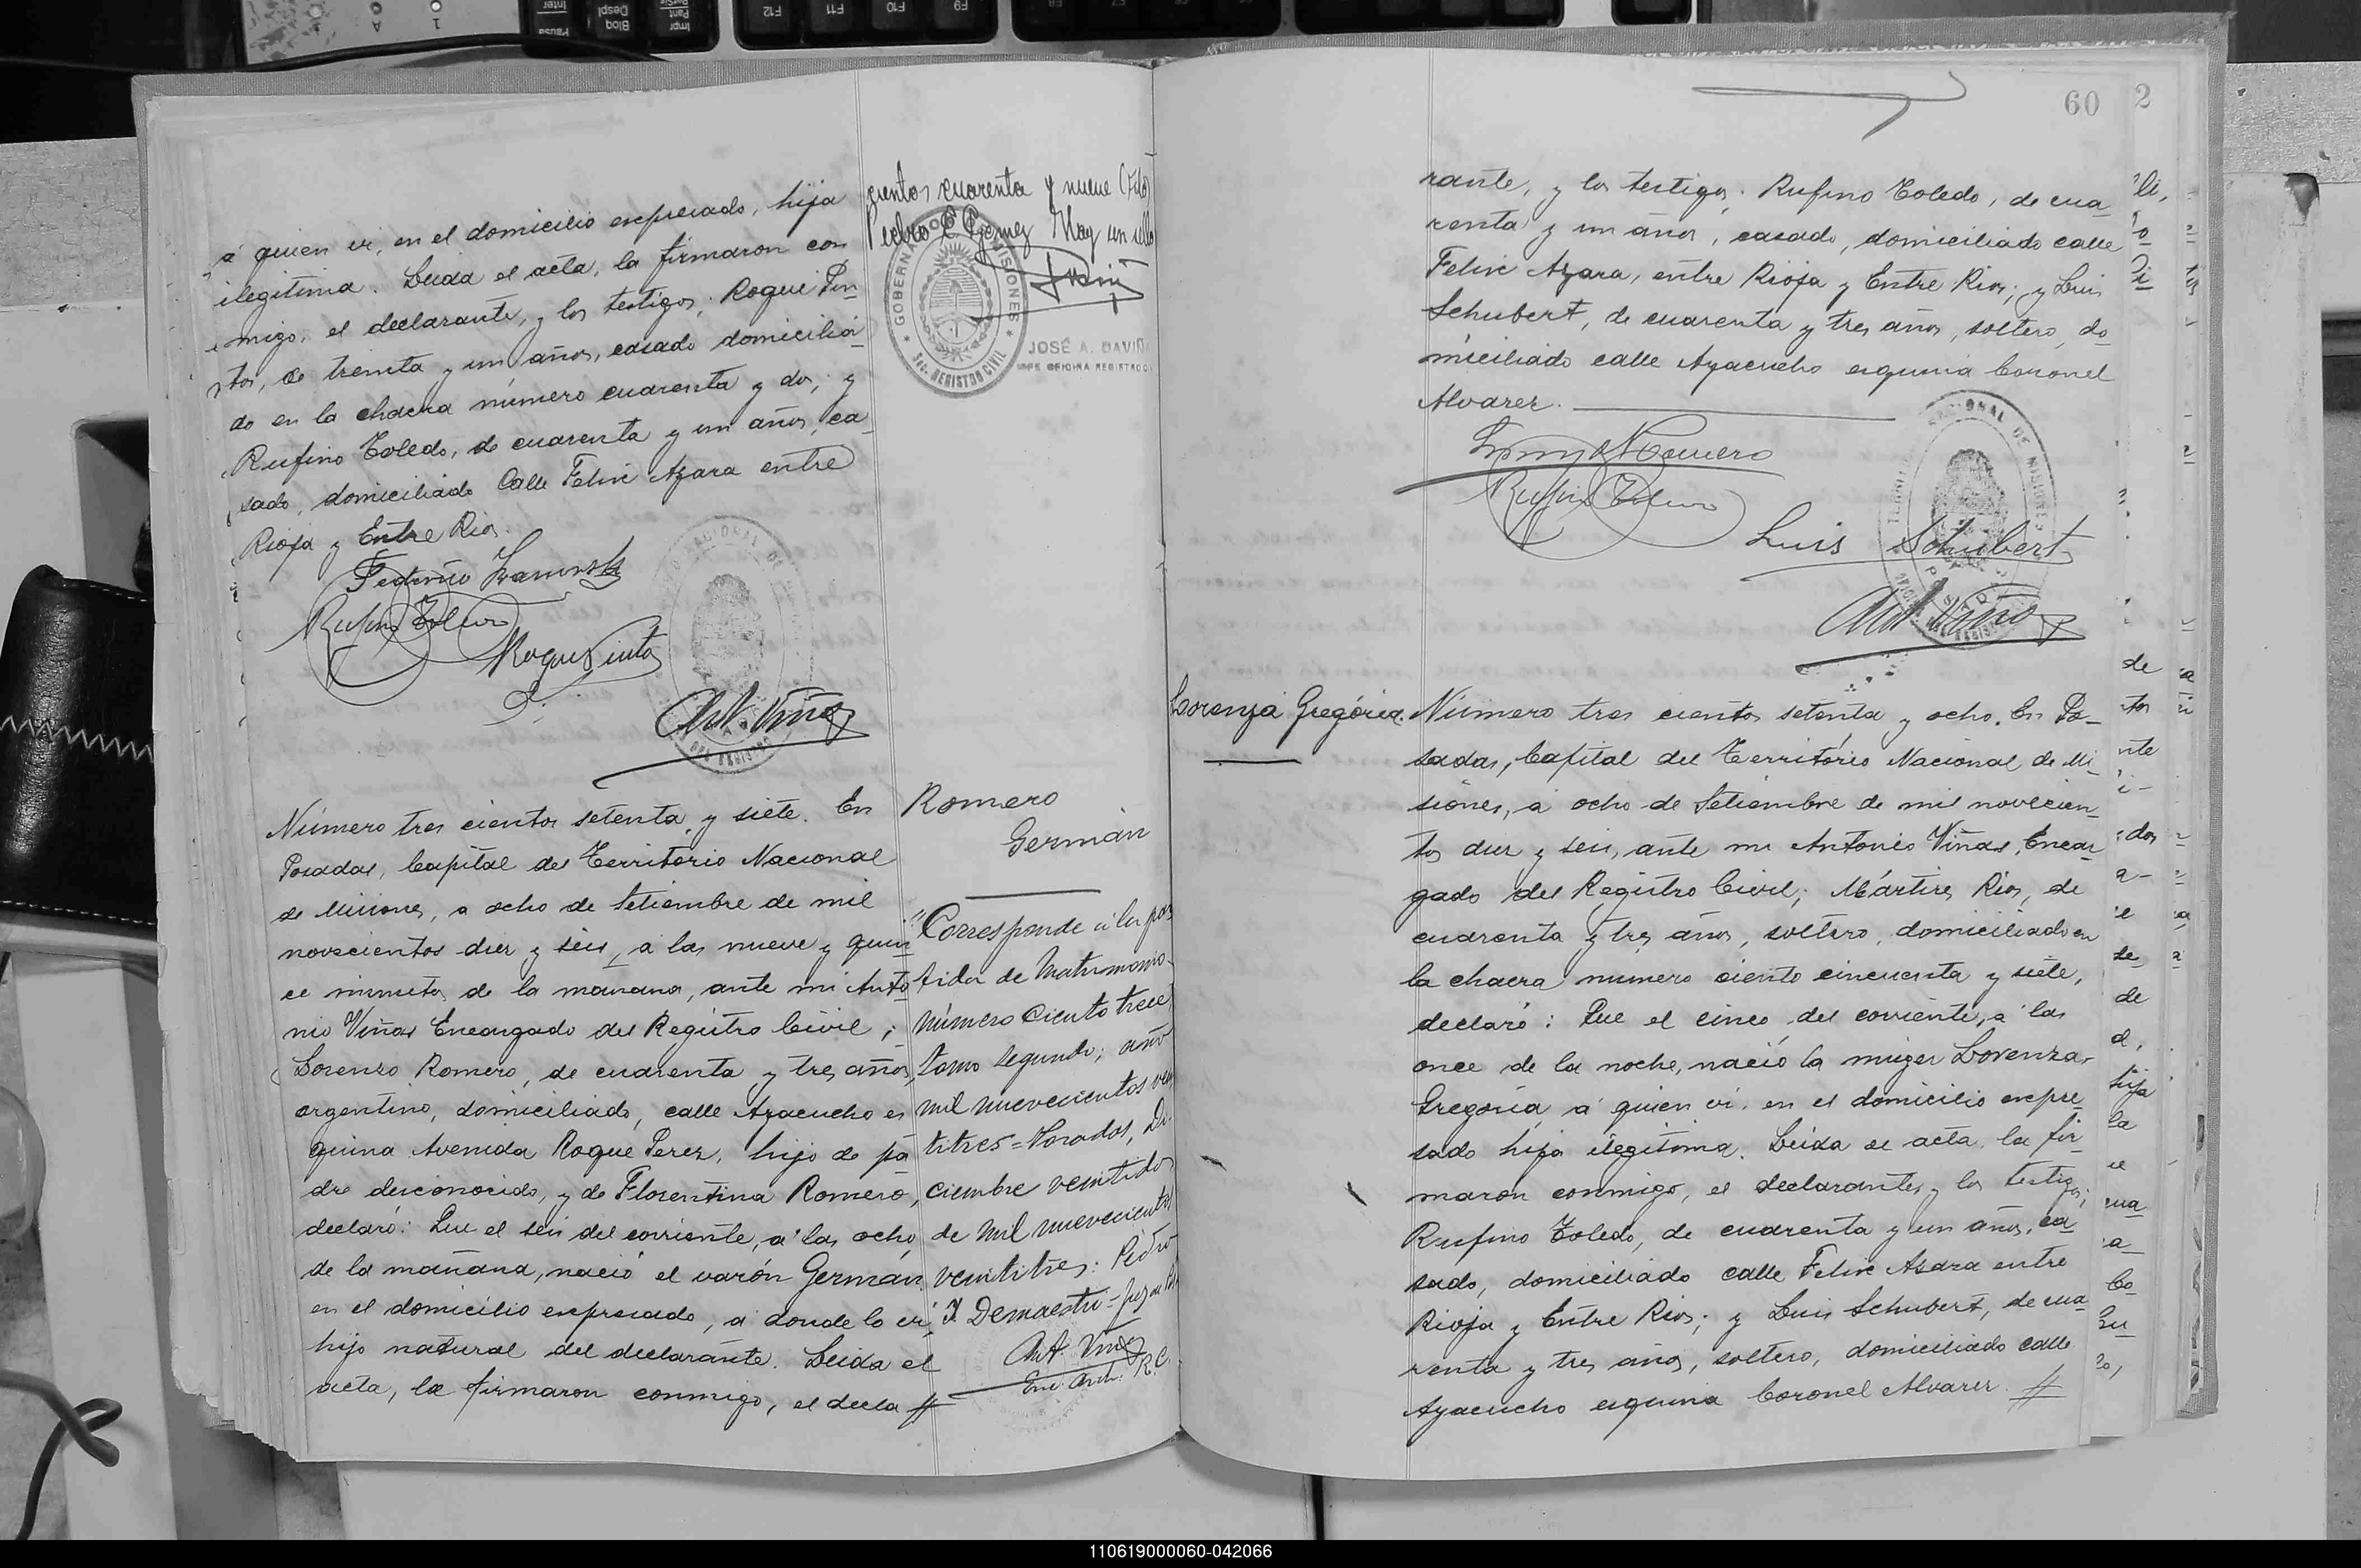 á quien vi, en el domicilio expresado, hija
ilegitima. Leida el acta, la firmaron con
migo, el declarante, y los testigos; Roque Pin
tos, de treinta y un años, casado domicilia
do en la chacra número cuarenta y dos; y
Rufino Toledo, de cuarenta y un años, ca
sado, domiciliado Calle Felix Azara entre
Rioja y Entre Rios.
Rufino Toledo
Roque Pinto
Ant. Viñas
cientos cuarenta y nueve
Pedro E Gomez Hay un sello
GOBERNACION MISIONES
REGISTRO CIVIL
JOSÉ A. DAVIÑA
JEFE OFICINA REGISTRO
Número tres cientos setenta y siete. En
Posadas, Capital del Territorio Nacional
de Misiones, a ocho de Setiembre de mil
novecientos diez y séis, a las nueve y quin
ce minutos de la mañana, ante mi Anto
nio Viñas Encargado del Registro Civil;
Lorenzo Romero, de cuarenta y tres años,
argentino, domiciliado, calle Ayacucho es
quina Avenida Roque Perez, hijo de pa
dre desconocido, y de Florentina Romero,
declaró: Que el seis del corriente, a las ocho
de la mañana, nació el varón Germán
en el domicilio expresado, a donde lo vi,
hijo natural del declarante. Leida el
acta, la firmaron conmigo, el decla #
Romero
Germán
"Corresponde á la par
tida de Matrimonio
número ciento trece
tomo segundo; año
mil nuevecientos vein
titres = Posados, Di
ciembre veintidos
de mil nuevecientos
veintitres: Pedro
I. Demaestri =
Ant Viñas
Enc. Arch. R. C.
60
2
rante, y los testigos: Rufino Toledo, de cua
renta y un años, casado, domiciliado calle
Felix Azara, entre Rioja y Entre Rios; y Luis
Schubert, de cuarenta y tres años, soltero, do
miciliado calle Ayacucho esquina Coronel
Alvarez.
Rufino Toledo
Luis Schubert
Ant. Viñas
Lorenza Gregória.
Número tres cientos setenta y ocho. En Po
sadas, Capital del Territorio Nacional de Mi
siones, a ocho de Setiembre de mil novecien
tos diez y seis, ante mi Antonio Viñas, Encar
gado del Registro Civil; Mártires Rios, de
cuarenta y tres años, soltero, domiciliado en
la chacra número ciento cincuenta y siete,
declaró: Que el cinco del corriente, a las
once de la noche, nació la mujer Lorenza
Gregoria, a quien vi, en el domicilio expre
sado hija ilegitima. Leida el acta, la fir
maron conmigo, el declarante, y los testigos;
Rufino Toledo, de cuarenta y un años, ca
sado, domiciliado calle Felix Azara entre
Rioja y Entre Rios; y Luis Schubert, de cua
renta y tres años, soltero, domiciliado calle
Ayacucho esquina Coronel Alvarez. #
110619000060-042066